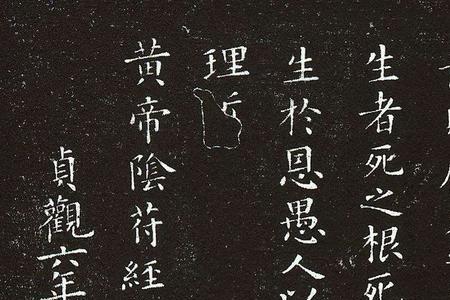 生者死之根死
生於恩愚人以
理
黃帝陰苻經
貞觀六年